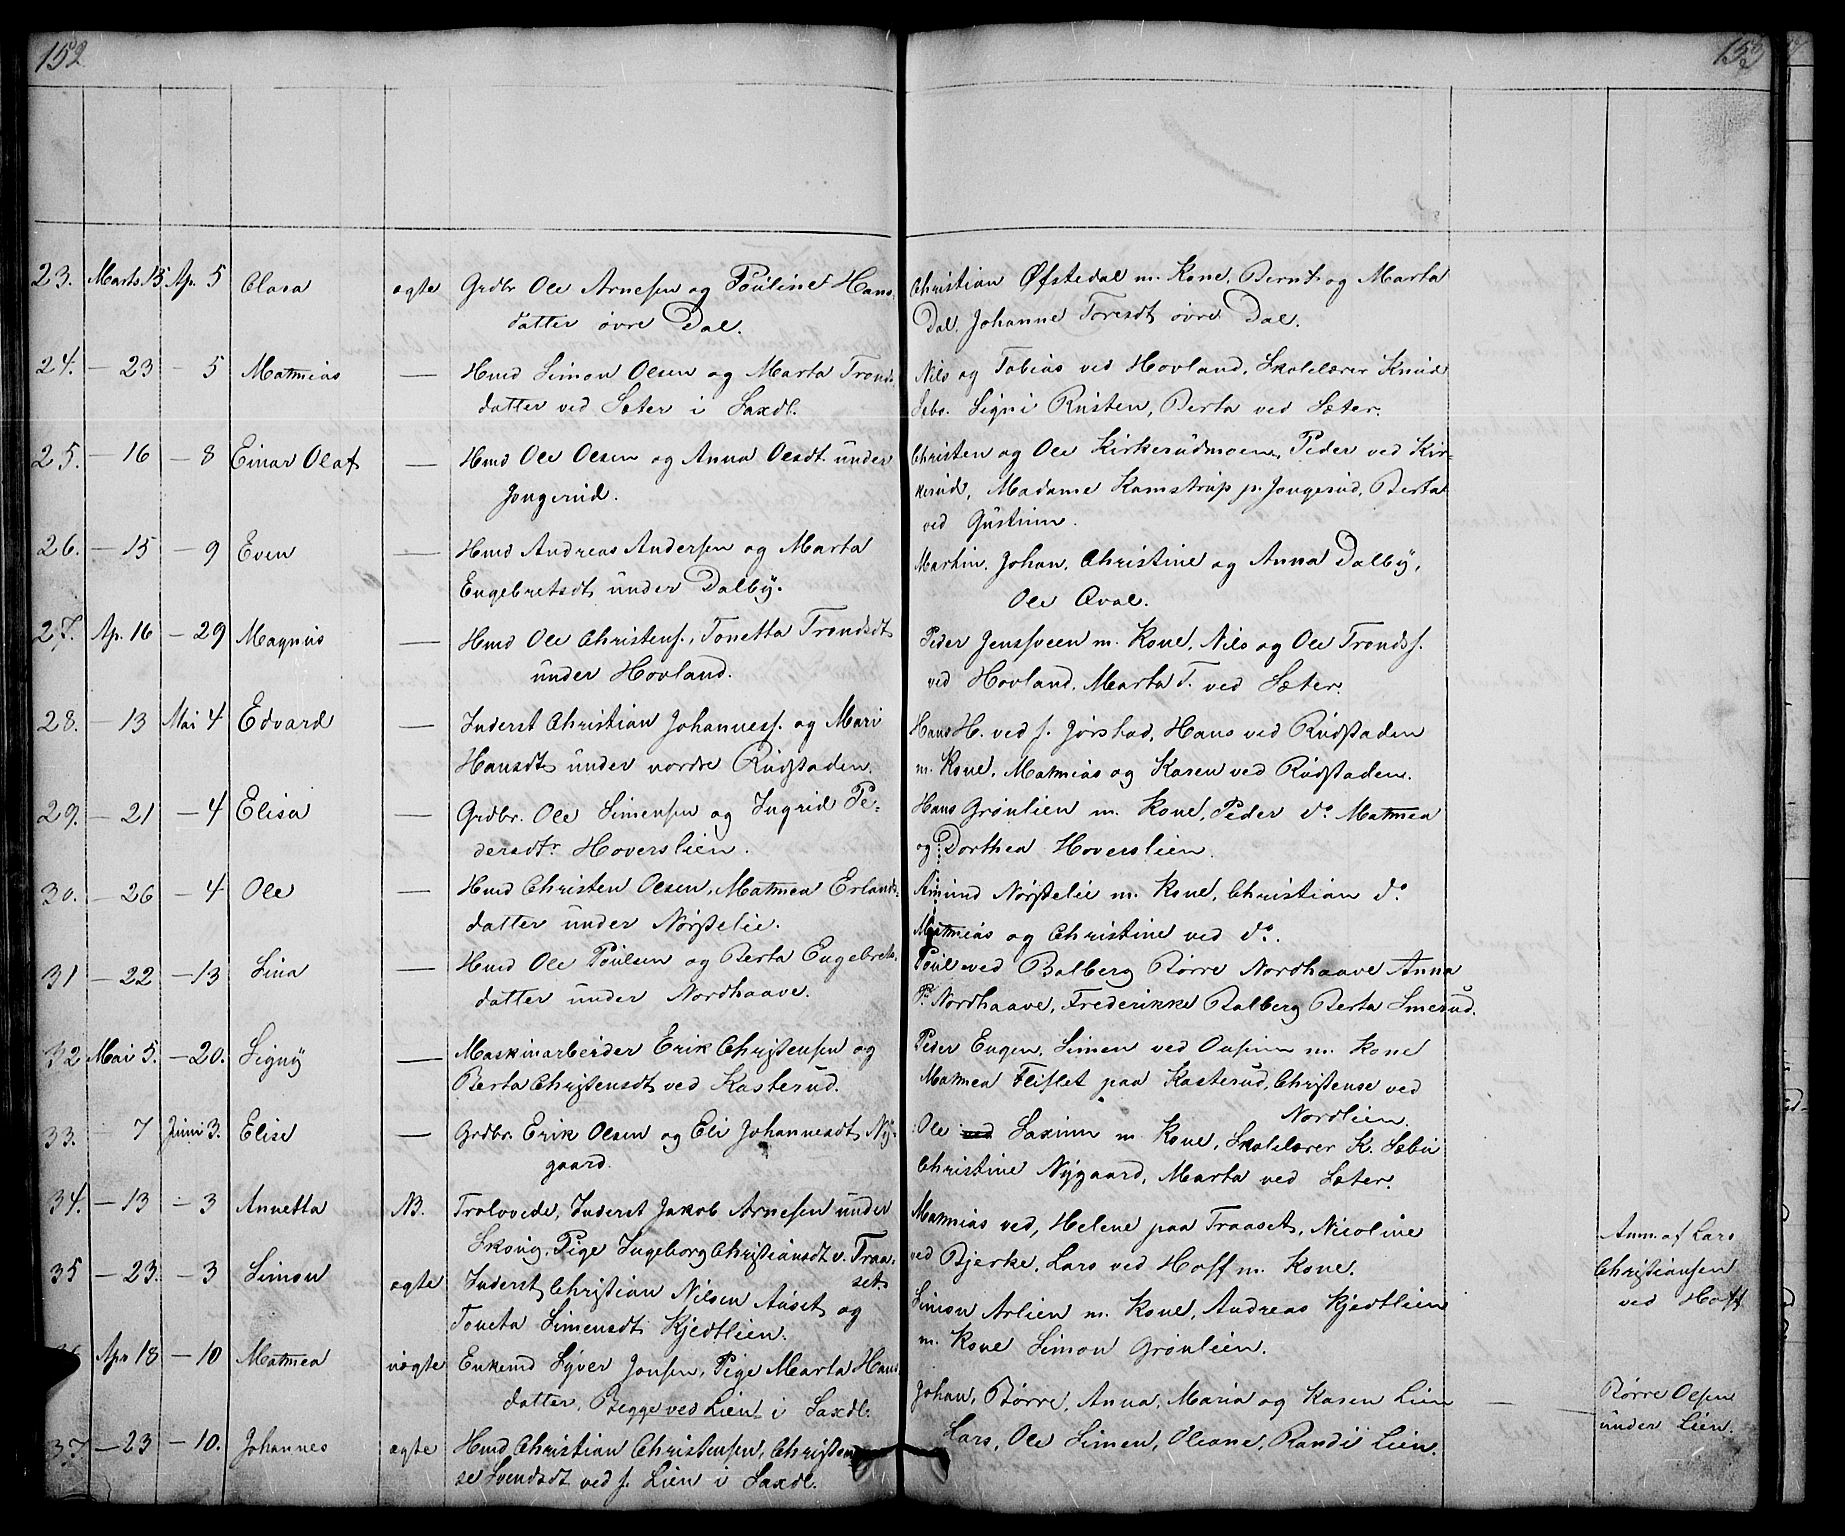 152
153
23. Marts 15 Ap. 5 Clara ægte Grdbr Ole Arnesen og Pouline Hans-
datter øvre Dal.
Christian Øfstedal m. Kone, Bernt og Marta
Dal. Johanne Toresdt øvre Dal.
24. — 23 — 5 Mathias — Hmd Simon Olsen og Marta Tronds-
datter ved Sæter i Saxdl.
Nils og Tobias ved Hovland, Skolelærer Knud
Sebo. Signi Rusten, Berta ved Sæter.
25. — 16 — 8 Einar Olaf — Hmd Ole Olsen og Anna Olsdt under
Jongerud.
Christen og Ole Kirkerudmoen, Peder ved Kir-
kerud, Madame Kamstrup p. Jongerud, Berta
ved Gustum.
26. — 15 — 9 Even — Hmd Andreas Andersen og Marta
Engebretsdt under Dalby.
Martin, Johan, Christine og Anna Dalby,
Ole Qval.
27. Ap. 16 — 29 Magnus — Hmd Ole Christens., Tonetta Trondsdt
under Hovland.
Peder Jenssveen m. Kone, Nils og Ole Tronds.
ved Hovland, Marta T. ved Sæter.
28. — 13 Mai 4 Edvard — Inderst Christian Johanness. og Mari
Hansdt under nordre Rudstaden.
Hans H. ved s. Jørstad, Hans ved Rudstaden
m. Kone, Mathias og Karen ved Rudstaden.
29. — 21 — 4 Elisa — Grdbr. Ole Simensen og Ingrid Pe-
dersdtr Hoverslien.
Hans Grønlien m. Kone, Peder do Mathea
og Dorthea Hoverslien.
30. — 26 — 4 Ole — Hmd Christen Olsen, Mathea Erlands-
datter under Nørstelie.
Amund Nørstelie m. Kone, Christian do
Mathias og Christine ved do.
31 — 22 — 13 Lina — Hmd Ole Poulsen og Berta Engebrets-
datter under Nordhaave.
Poul ved Balberg Børre Nordhaave Anna
P. Nordhaave, Frederikke Balberg Berta Smerud.
32 Mai 5. — 20. Signy — Maskinarbeider Erik Christensen og
Berta Christensdt ved Kasterud.
Peder Engen, Simen ved Ousinn m. Kone
Mathea Fliflet paa Kasterud, Christense ved
Nordlien.
33. — 7 Juni 3. Elise — Grdbr. Erik Olsen og Eli Johannesdt Ny-
gaard.
Ole ved Saxinn m. Kone, Skolelærer K. Sæbu
Christine Nygaard, Marta ved Sæter.
34. — 13 — 3 Annetta NB. Trolovede, Inderst Jakob Arnesen under
Skoug, Pige Ingeborg Christiansdt v. Traa-
set.
Mathias ved, Helene paa Traaset, Nicoline
ved Bjerke, Lars ved Hoff m. Kone.
Anm. af Lars
Christiansen
ved Hoff
35 — 23. — 3 Simon ægte Inderst Christian Nilsen Aaset og
Toneta Simensdt Kjedtlien.
Simon Arlien m. Kone, Andreas Kjedtlien
m. Kone Simon Grønlien.
36 Apr 18 — 10 Mathea uægte Enkemd Syver Jonsen, Pige Marta Hans-
datter, Begge ved Lien i Saxdl.
Johan, Børre, Anna, Maria og Karen Lien — —
Børre Olsen
under Lien.
37. — 23 — 10. Johannes ægte Hmd Christian Christensen, Christen-
se Svendsdt ved s. Lien i Saxdl.
Lars, Ole Simen, Oleane, Randi Lien.